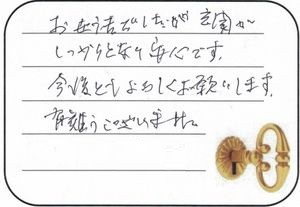 お世話でしたが 玄関が
しっかりとなり安心です。
今後ともよろしくお願いします。
有難うございました